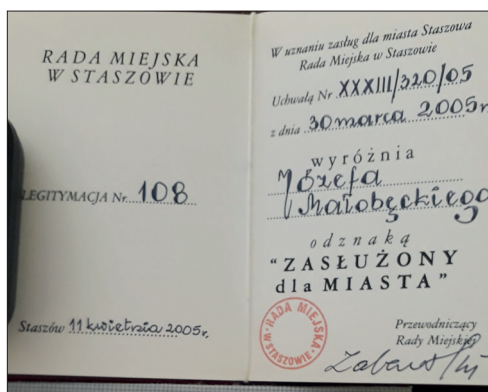 RADA MIEJSKA
W STASZOWIE
LEGITYMACJA Nr 108
Staszów 11 kwietnia 2005r.
W uznaniu zasług dla miasta Staszowa
Rada Miejska w Staszowie
Uchwałą Nr XXXIII/320/05
z dnia 30 marca 2005r
wyróżnia
Józefa
Małobęckiego
odznaką
"ZASŁUŻONY
dla MIASTA"
RADA MIEJSKA
W STASZOWIE
Przewodniczący
Rady Miejskiej